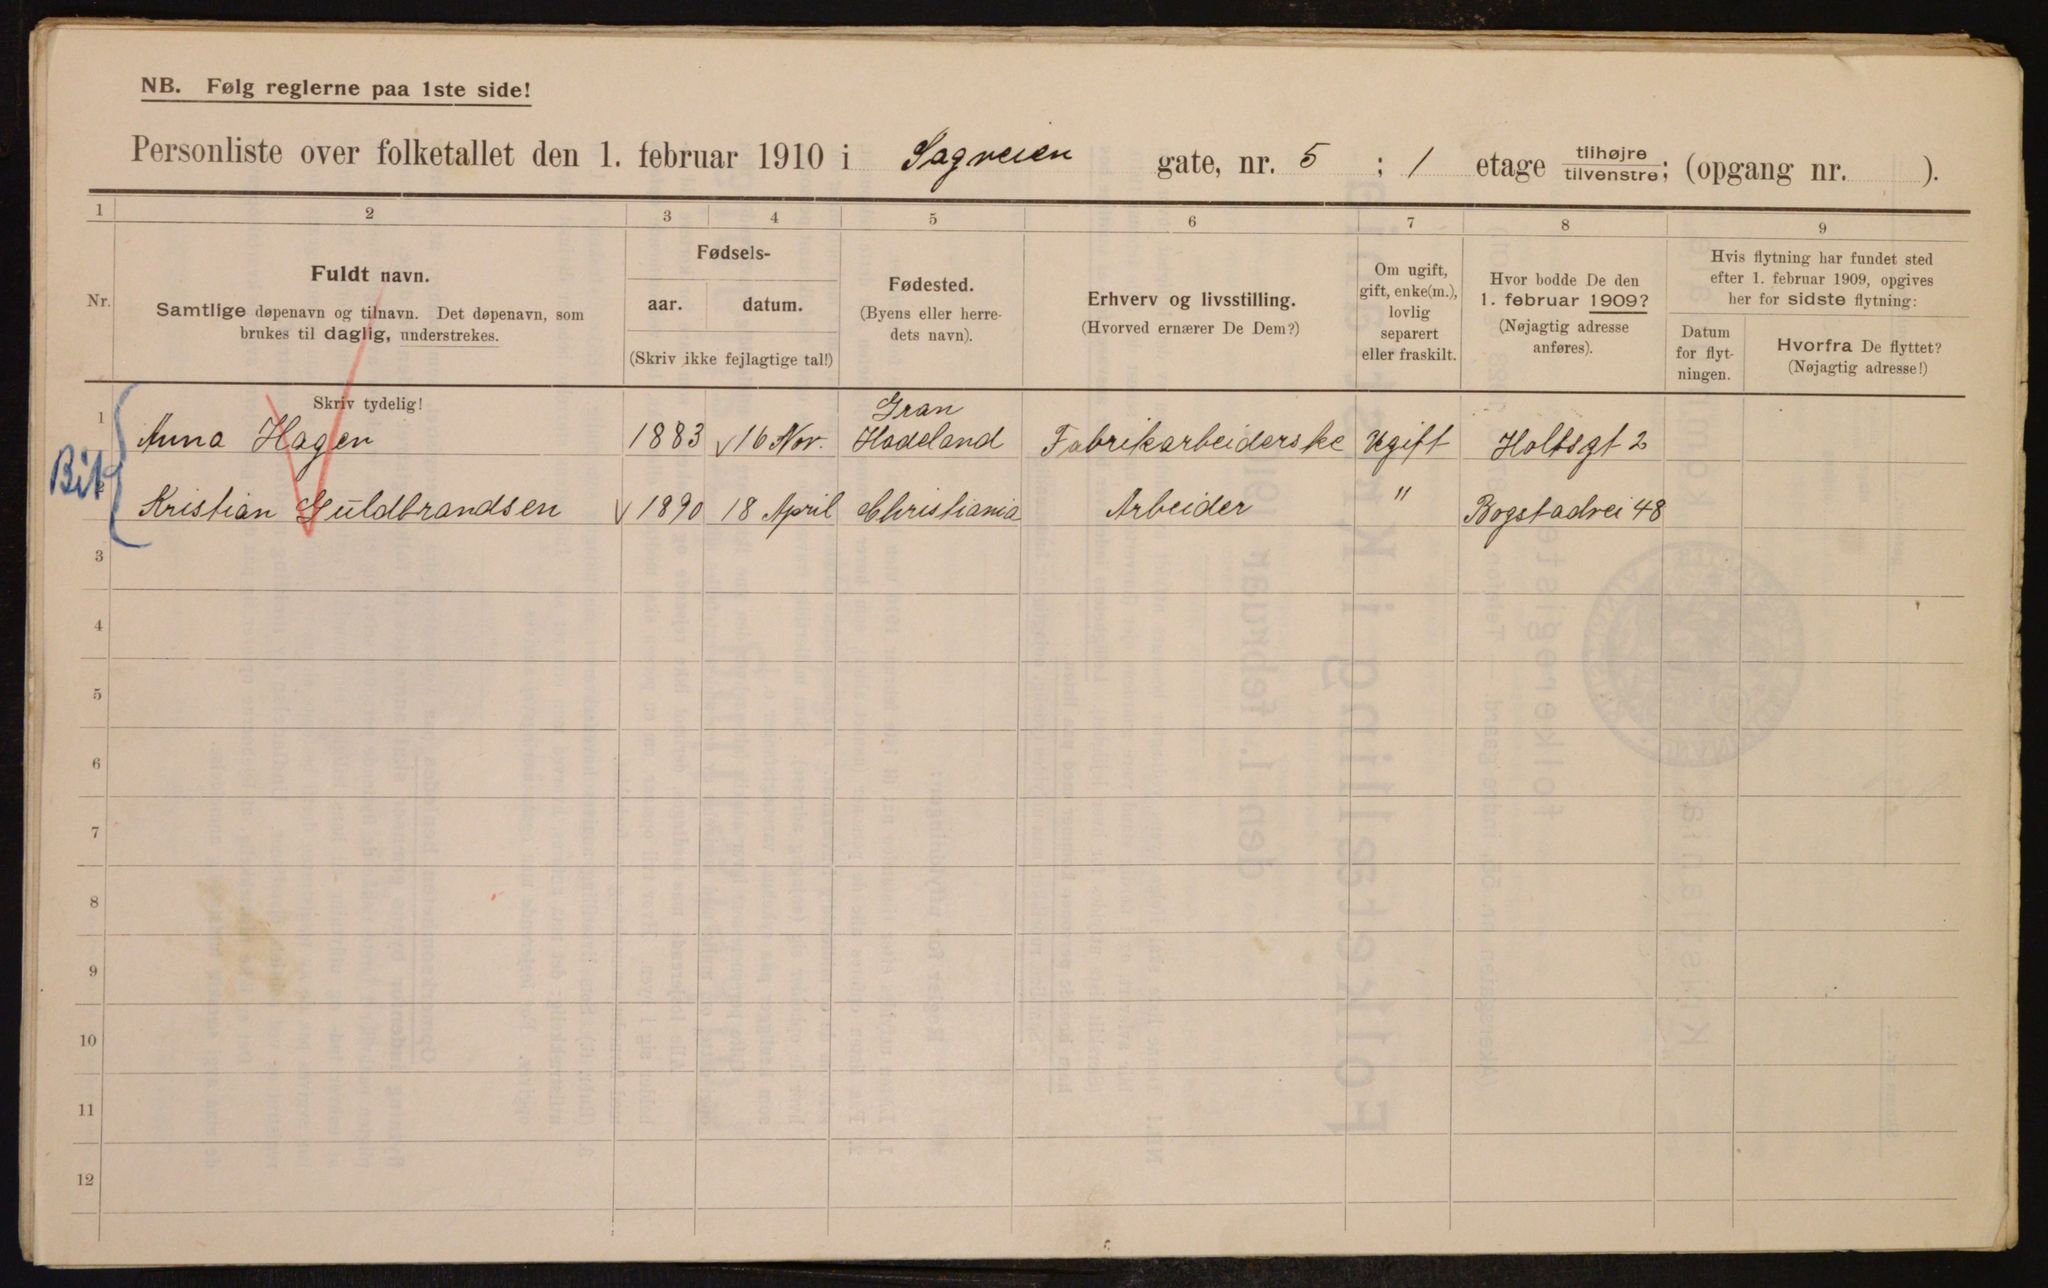 NB. Følg reglerne paa 1ste side!
Personliste over folketallet den 1. februar 1910 i Sagveien gate, nr. 5 ; 1 etage tilhøjre/tilvenstre; (opgang nr. ).
1 2 3 4 5 6 7 8 9
Nr.
Fuldt navn.
Samtlige døpenavn og tilnavn. Det døpenavn, som
brukes til daglig, understrekes.
Fødsels-
aar. datum.
(Skriv ikke fejlagtige tal!)
Fødested.
(Byens eller herre-
dets navn).
Erhverv og livsstilling.
(Hvorved ernærer De Dem?)
Om ugift,
gift, enke(m.),
lovlig
separert
eller fraskilt.
Hvor bodde De den
1. februar 1909?
(Nøjagtig adresse
anføres).
Hvis flytning har fundet sted
efter 1. februar 1909, opgives
her for sidste flytning:
Datum
for flyt-
ningen.
Hvorfra De flyttet?
(Nøjagtig adresse!)
Skriv tydelig!
Gran
1 Anna Hagen 1883 16 Nov. Hadeland Fabrikarbeiderske Ugift Holtsgt 2
Bit
2 Kristian Guldbrandsen 1890 18 April Christiania Arbeider " Bogstadvei 48
3
4
5
6
7
8
9
10
11
12